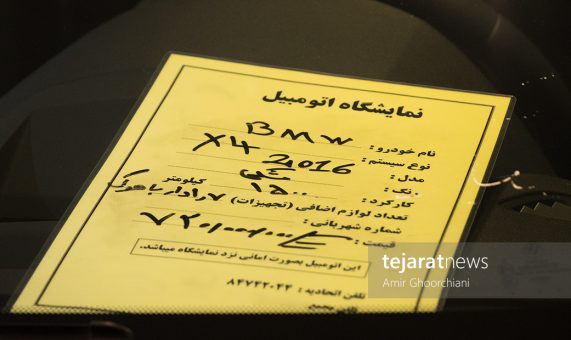 نمایشگاه اتومبیل
نام خودرو : BMW
نوع سیستم : X4
مدل : 2016
رنگ :
کارکرد : ۱۵۰۰۰ کیلومتر
تعداد لوازم اضافی (تجهیزات) ۷ رادار با هوک
شماره شهربانی :
قیمت :
این اتومبیل بصورت امانی نزد نمایشگاه میباشد.
تلفن اتحادیه : ۸۴۷۴۲۰۴۴
tejaratnews
Amir Ghoorchiani